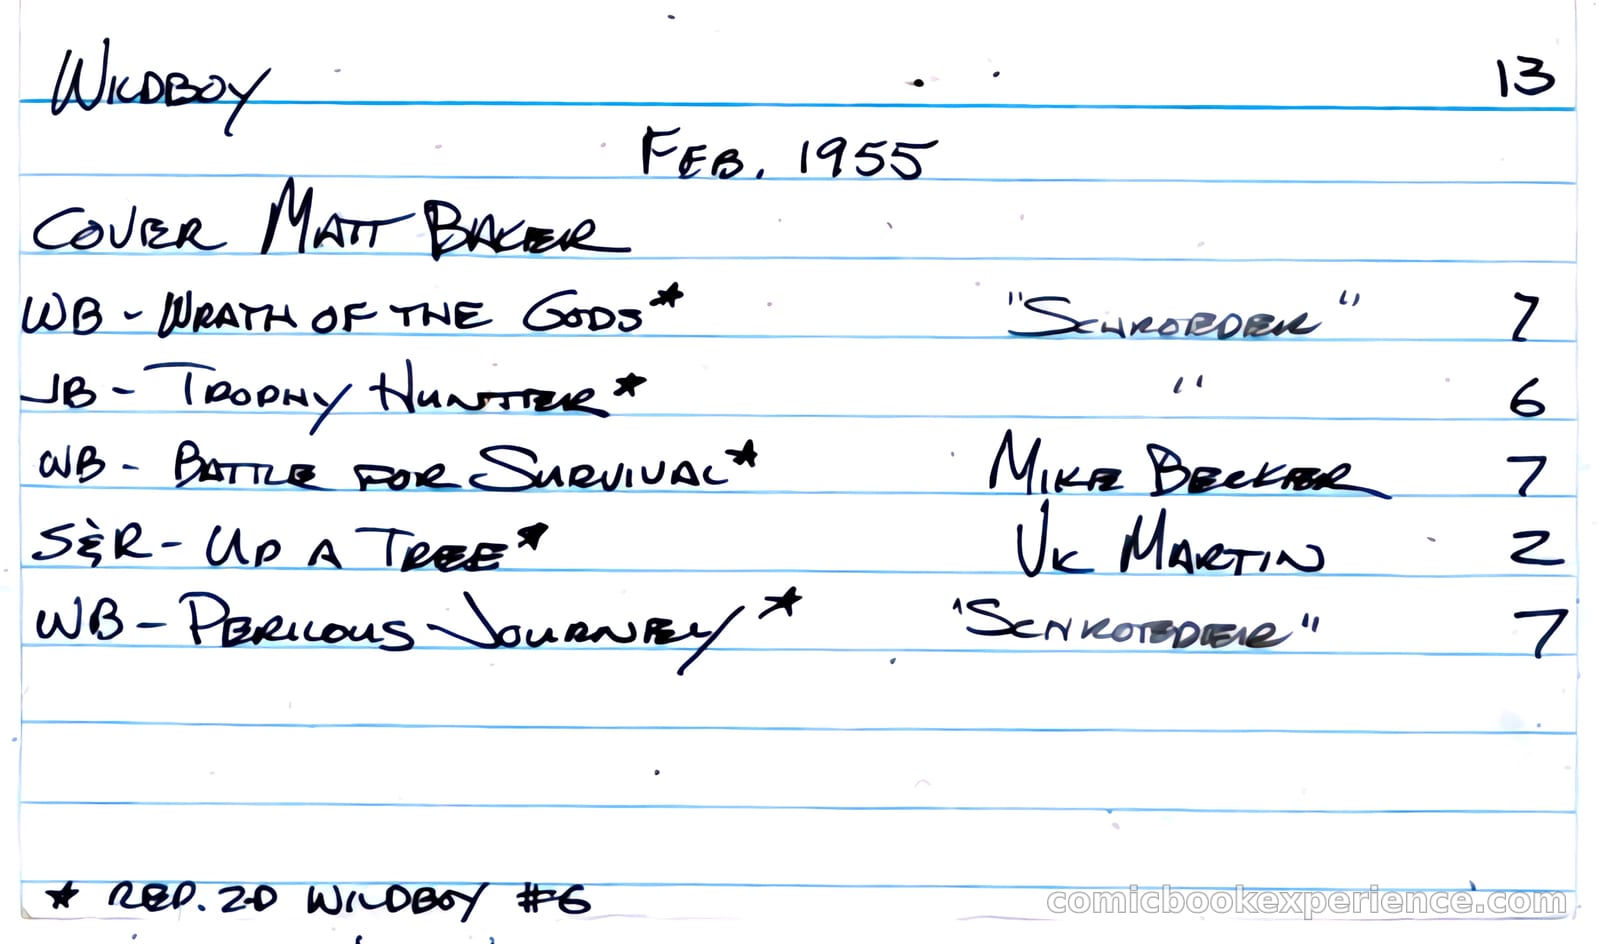 WILDBOY 13
FEB. 1955
COVER MATT BAKER
WB - WRATH OF THE GODS★ "SCHROEDER" 7
JB - TROPHY HUNTER★ " 6
WB - BATTLE FOR SURVIVAL★ MIKE BECKER 7
S&R - UP A TREE★ UK MARTIN 2
WB - PERILOUS JOURNEY★ "SCHROEDER" 7
★ REP. Z-D WILDBOY #6
comicbookexperience.com